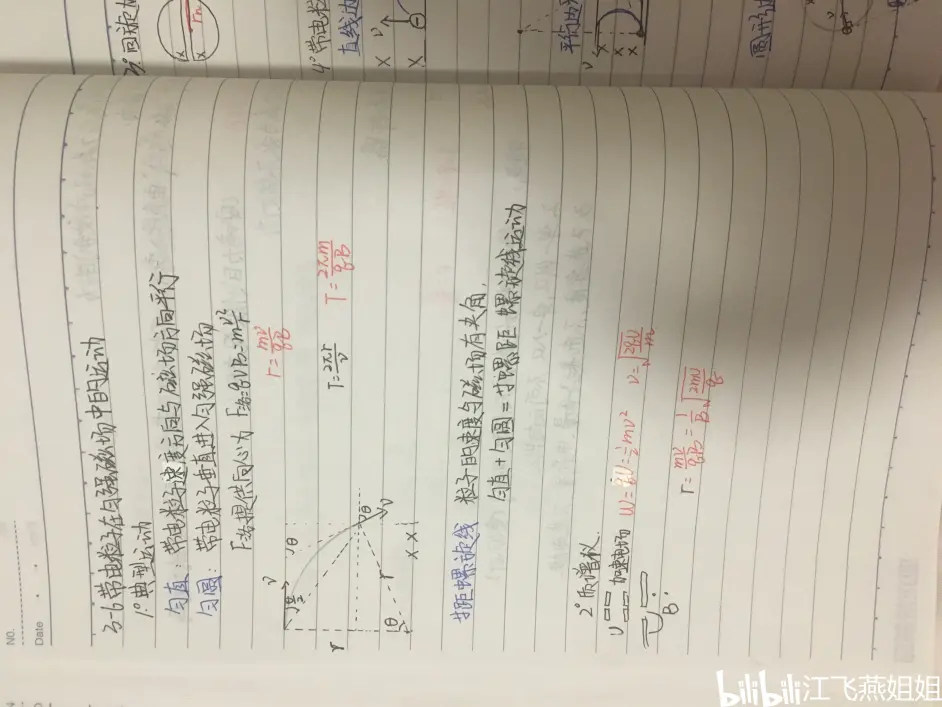 NO.
Date
3-6 带电粒子在匀强磁场中的运动
1° 典型运动
匀直：带电粒子速度方向与磁场方向平行
匀圆：带电粒子垂直进入匀强磁场
F洛提供向心力 F洛=qvB=m v²/r
r=mv/qB
T=2πr/v T=2πm/qB
v
θ
θ
v
r
r
θ
x x
等距螺旋线 粒子的速度与磁场有夹角.
匀直+匀圆=等螺距螺旋线运动
2° 质谱仪
U 加速电场 W=qU=½mv² v=√(2qU/m)
B
r=mv/qB=1/B √(2mU/q)
3° 回旋加
4° 带电粒
直线边
平行边
圆形边
bilibili 江飞燕姐姐